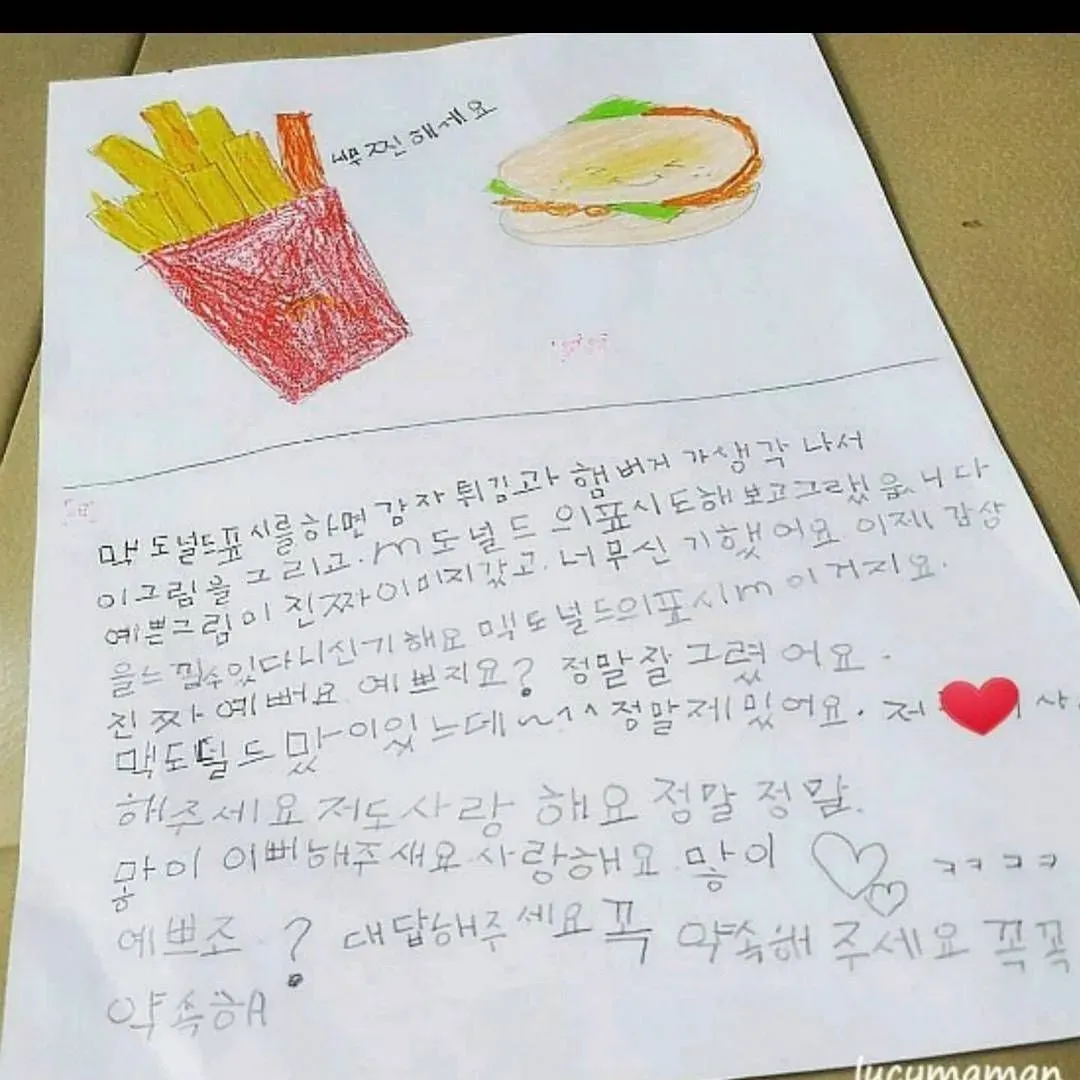 해게요
맥도널드표시를하면 감자튀김과 햄버거가생각나서
이그림을 그리고. m도널드의표시도해보고그랬읍니다
예쁜그림이 진짜이미지갔고. 너무신기했어요 이제 감상
을느낄수있다니신기해요 맥도널드의표시m 이거지요.
진짜예뻐요 예쁘지요? 정말잘그렸어요.
맥도널드맜이있느데~^^정말제밌어요. 저
해주세요저도사랑해요 정말정말.
많이 이뻐해주새요.사랑해요.많이 ㅋㅋㅋㅋ
예쁘죠.? 대답해주세요꼭 약속해주세요꼭꼭
약속해
lucymaman